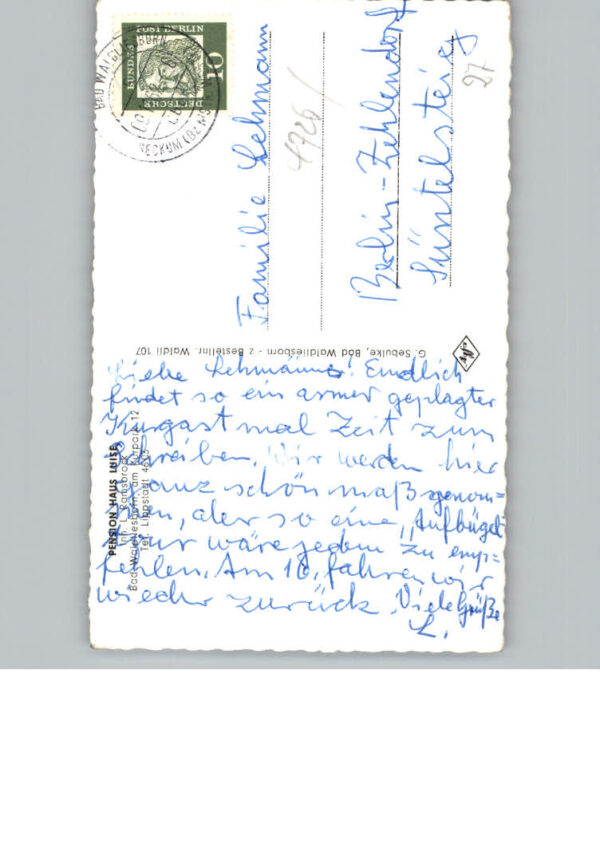 Liebe Lehmänns! Endlich
findet so ein armer geplagter
Kurgast mal Zeit zum
Schreiben. Wir werden hier
ganz schön maß genom=
men, aber so eine „Aufbügel
kur wäre jedem zu emp=
fehlen. Am 18. fahren wir
wieder zurück. Viele Grüße
L.
Familie Lehmann
Berlin-Zehlendorf
Süntelsteig
27
4926/
PENSION HAUS LUISE
Inh. L.
Bad Waldliesborn am Kurpark 12
Tel. Lippstadt
G. Sebulke, Bad Waldliesborn - z Bestellnr. Waldli 107
DEUTSCHE
BUNDES
POST BERLIN
10
BAD WALDLIESBORN
BECKUM (BZ MSTR)